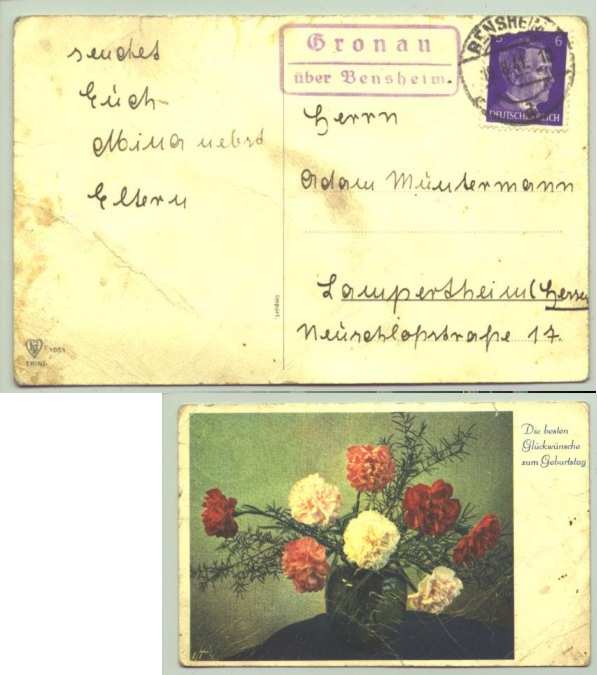 Gronau
über Bensheim.
BENSHEIM
6
DEUTSCHES REICH
sendet
Euch
Mina nebst
Eltern
Herrn
Adam Müntermann
Lampertheim (Hessen
Neuschloßstraße 17.
1051
Die besten
Glückwünsche
zum Geburtstag